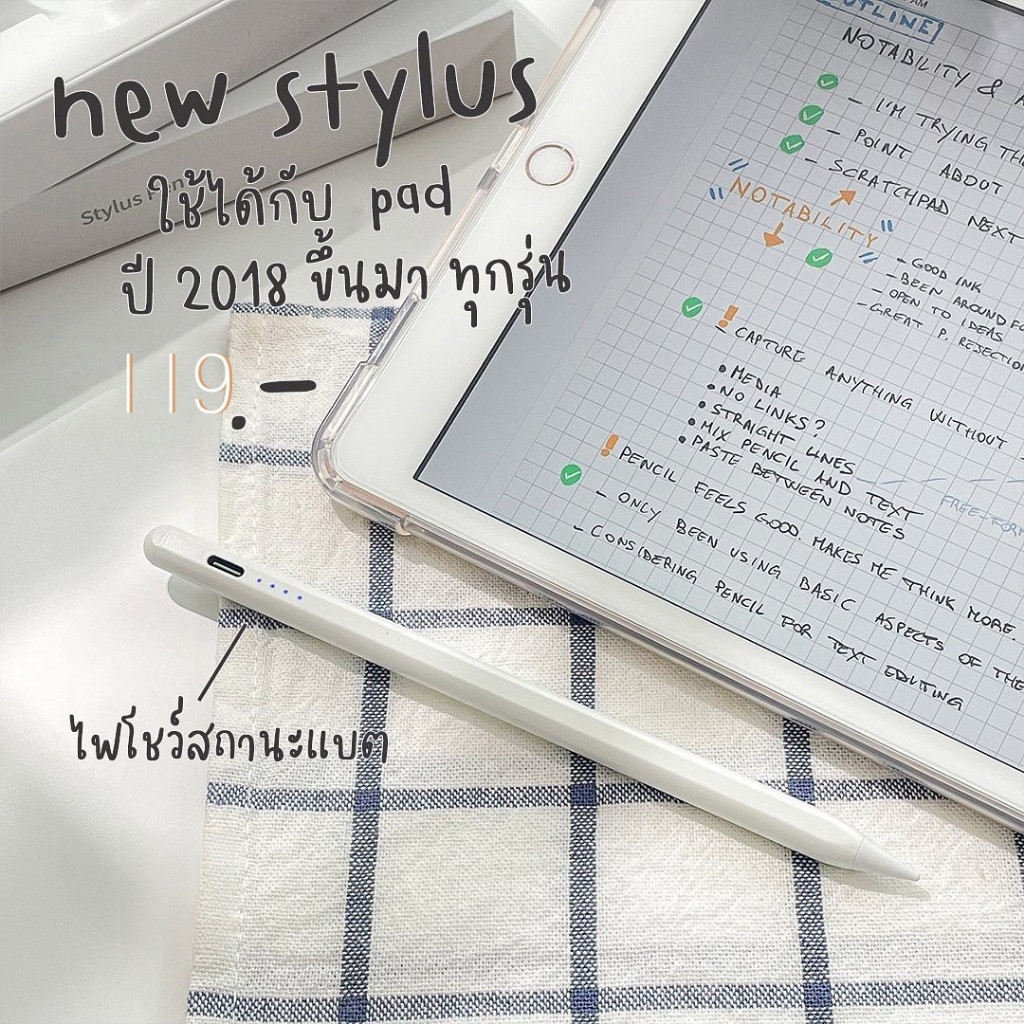 new stylus
Stylus Pen
ใช้ได้กับ pad
ปี 2018 ขึ้นมา ทุกรุ่น
119.-
ไฟโชว์สถานะแบต
AM
OUTLINE
NOTABILITY &
- I'M TRYING
- POINT ABOUT
- SCRATCHPAD NEXT
"NOTABILITY"
- GOOD INK
- BEEN AROUND
- OPEN TO IDEAS
- GREAT P. REJECTION
! CAPTURE ANYTHING WITHOUT
• MEDIA
• NO LINKS?
• STRAIGHT LINES
• MIX PENCIL AND TEXT
• PASTE BETWEEN NOTES
FREE-FORM
! PENCIL FEELS GOOD. MAKES ME THINK MORE.
- ONLY BEEN USING BASIC ASPECTS OF THE
- CONSIDERING PENCIL FOR TEXT EDITING